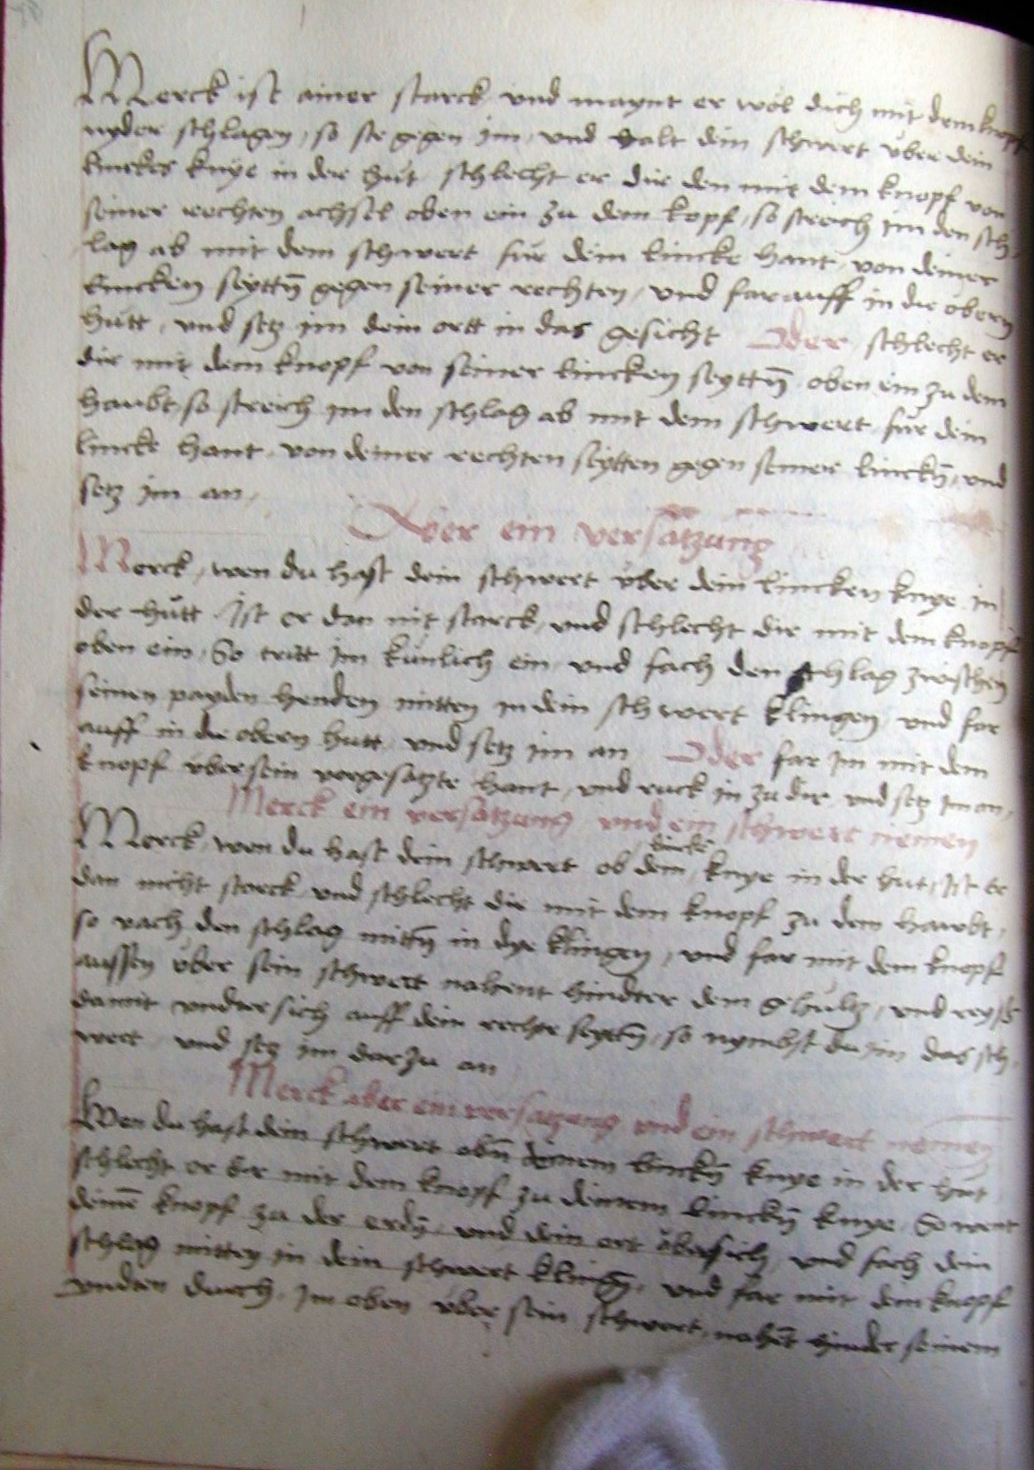 Merck ist ainer starck und maynt er wöl dich mit dem knopf
nyder schlagen, so ste gegen im, und halt dein schwert über dein
linckes knye in der hut, schlecht er dir den mit dem knopf von
seiner rechten achsel oben ein zu dem kopf, so streich im den sch
lag ab mit dem schwert für dein lincke hant, von deiner
lincken seyttn̄ gegen seiner rechten, und far auff in die obern
hutt, und setz im dein ortt in das gesicht Oder schlecht er
dir mit dem knopf von seiner lincken seyttn̄ oben ein zu dem
haubt, so streich im den schlag ab mit dem schwert für dein
lincke hant, von deiner rechten seytten gegen seiner linckn̄, und
setz im an,
Aber ein versatzung
Merck, wen du hast dein schwert über dein lincken knye in
der hutt, Ist er dan nit starck, und schlecht dir mit dem knopf
oben ein, So tritt im künlich ein, und fach den schlag zwischen
seinen payden henden mitten in dein schwert klingen, und far
auff in die obern hutt, und setz im an Oder far im mit dem
knopf über sein vorgesatzte hant, und ruck in zu dir, und setz im an,
Merck ein versatzung und ein schwert nemen
Merck, wen du hast dein schwert ob dein lincke knye in der hut, Ist er
dan nicht starck, und schlecht dir mit dem knopf zu dem haubt,
so vach den schlag mittn̄ in dye klingen, und far mit dem knopf
aussen über sein schwert nahent hindter dem gehultz, und reyss
damit undtersich auff dein rechte seyttn̄, so nymbst du im das sch
wert, und setz im darzu an
Merck aber ein versatzung und ein schwert nemen
Wen du hast dein schwert obn̄ deinem linckn̄ knye in der hut
schlecht er dir mit dem knopf zu deinem linckn̄ knye, So went
deinē knopf zu der erdn̄, und dein ort übersich, und fach dein
schlag mitten in dein schwert klingn̄, und far mit dem knopf
undten durch, Im oben über sein schwert, nahēt hinder seinem